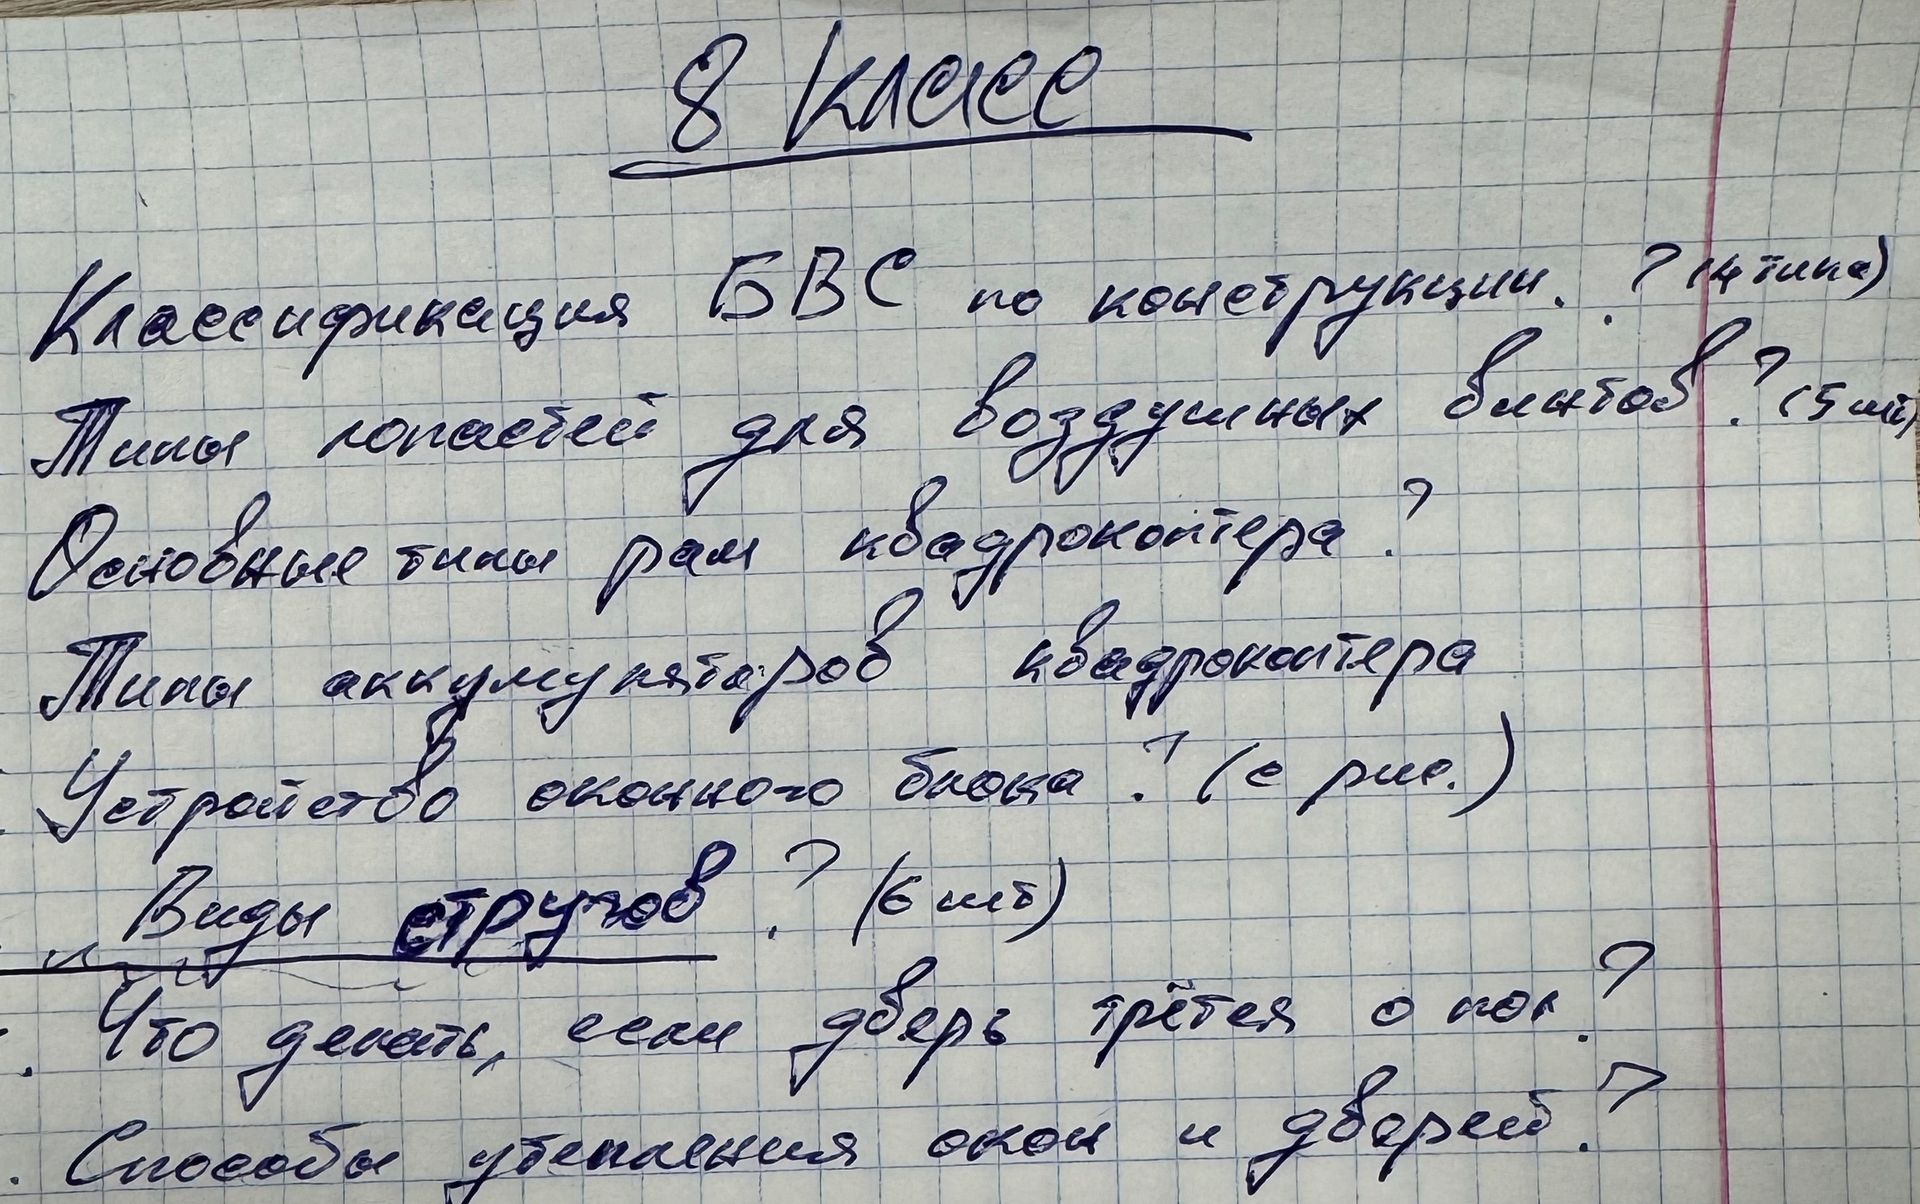 8 класс
Классификация БВС по конструкции. ? (4 типа)
Типы лопастей для воздушных винтов? (5 шт)
Основные типы рам квадрокоптера?
Типы аккумуляторов квадрокоптера
Устройство оконного блока? (с рис.)
Виды стругов? (6 шт)
Что делать, если дверь трётся о пол?
Способы утепления окон и дверей?